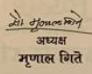 सौ. मृणाल गिते
अध्यक्ष
मृणाल गिते